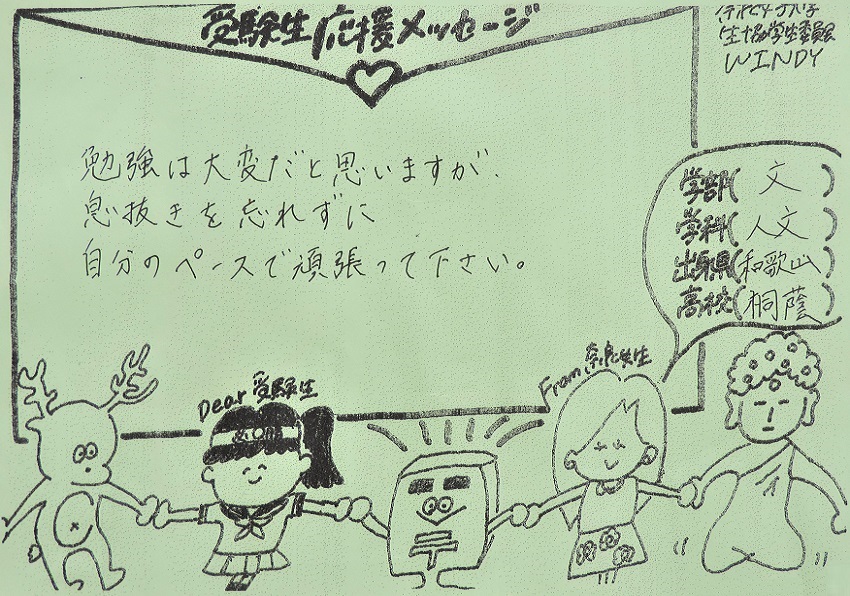 受験生応援メッセージ
生協学生委員会
WINDY
勉強は大変だと思いますが、
息抜きを忘れずに
自分のペースで頑張って下さい。
学部(文)
学科(人文)
出身県(和歌山)
高校(桐蔭)
Dear 受験生
From 奈良女生